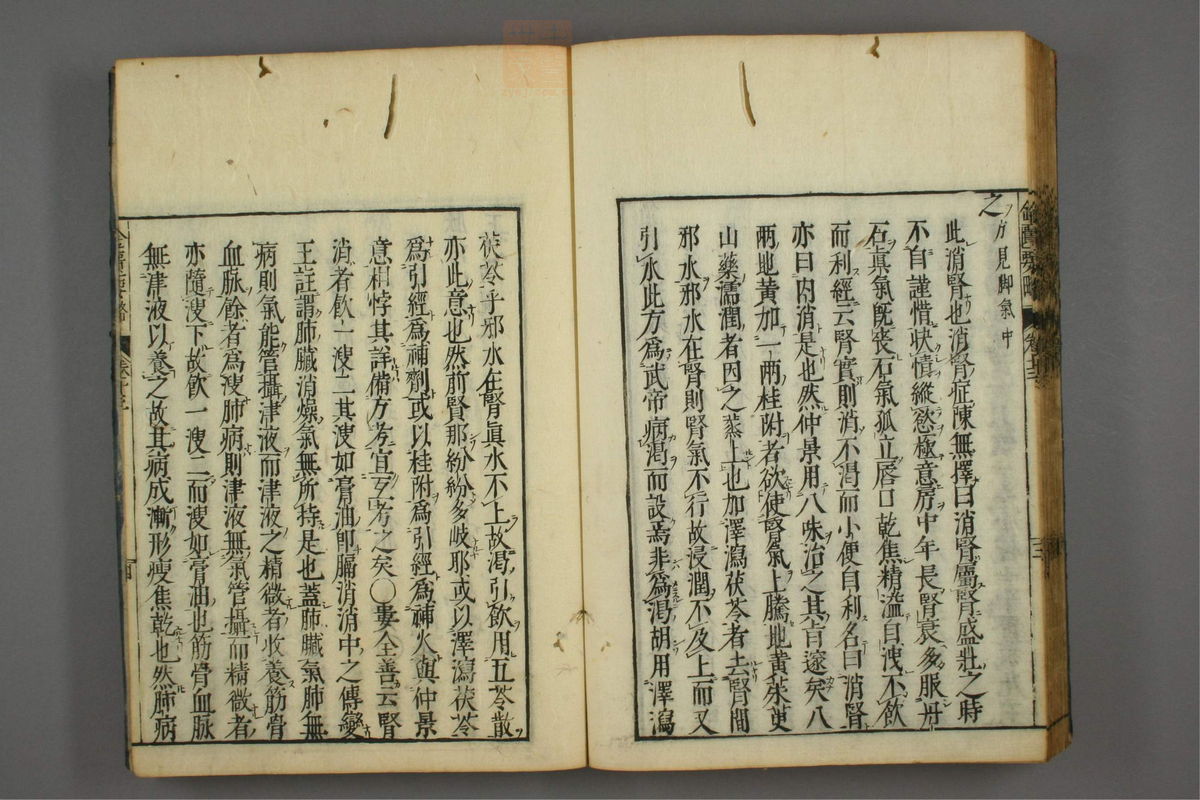 之方見脚氣中
此消腎也消腎症陳無擇曰消腎屬腎盛壯之時
不自謹惜快情縱慾極意房中年長腎衰多服丹
石真氣既喪石氣孤立唇口乾焦精溢自洩不飲
而利經云腎實則消不渴而小便自利名曰消腎
亦曰内消是也然仲景用八味治之其旨邃矣八
兩地黄加一兩桂附者欲使腎氣上騰地黄茱萸
山藥濡潤者因之蒸上也加澤瀉茯苓者去腎間
邪水邪水在腎則腎氣不行故浸潤不及上而又
引水此方爲武帝病渴而設焉非爲渴胡用澤瀉
茯苓乎邪水在腎眞水不上故渴引飲用五苓散
亦此意也然前腎那紛紛多岐耶或以澤瀉茯苓
爲引經爲補劑或以桂附爲引經爲補火與仲景
意相悖其詳備方考宜互考之矣○婁全善云腎
消者飲一溲二其溲如膏油卽膈消消中之傳變
王註謂肺臟消燥氣無所持是也蓋肺臟氣肺無
病則氣能管攝津液而津液之精微者收養筋骨
血脉餘者爲溲肺病則津液無氣管攝而精微者
亦隨溲下故飲一溲二而溲如膏油也筋骨血脉
無津液以養之故其病成漸形瘦焦乾也然肺病